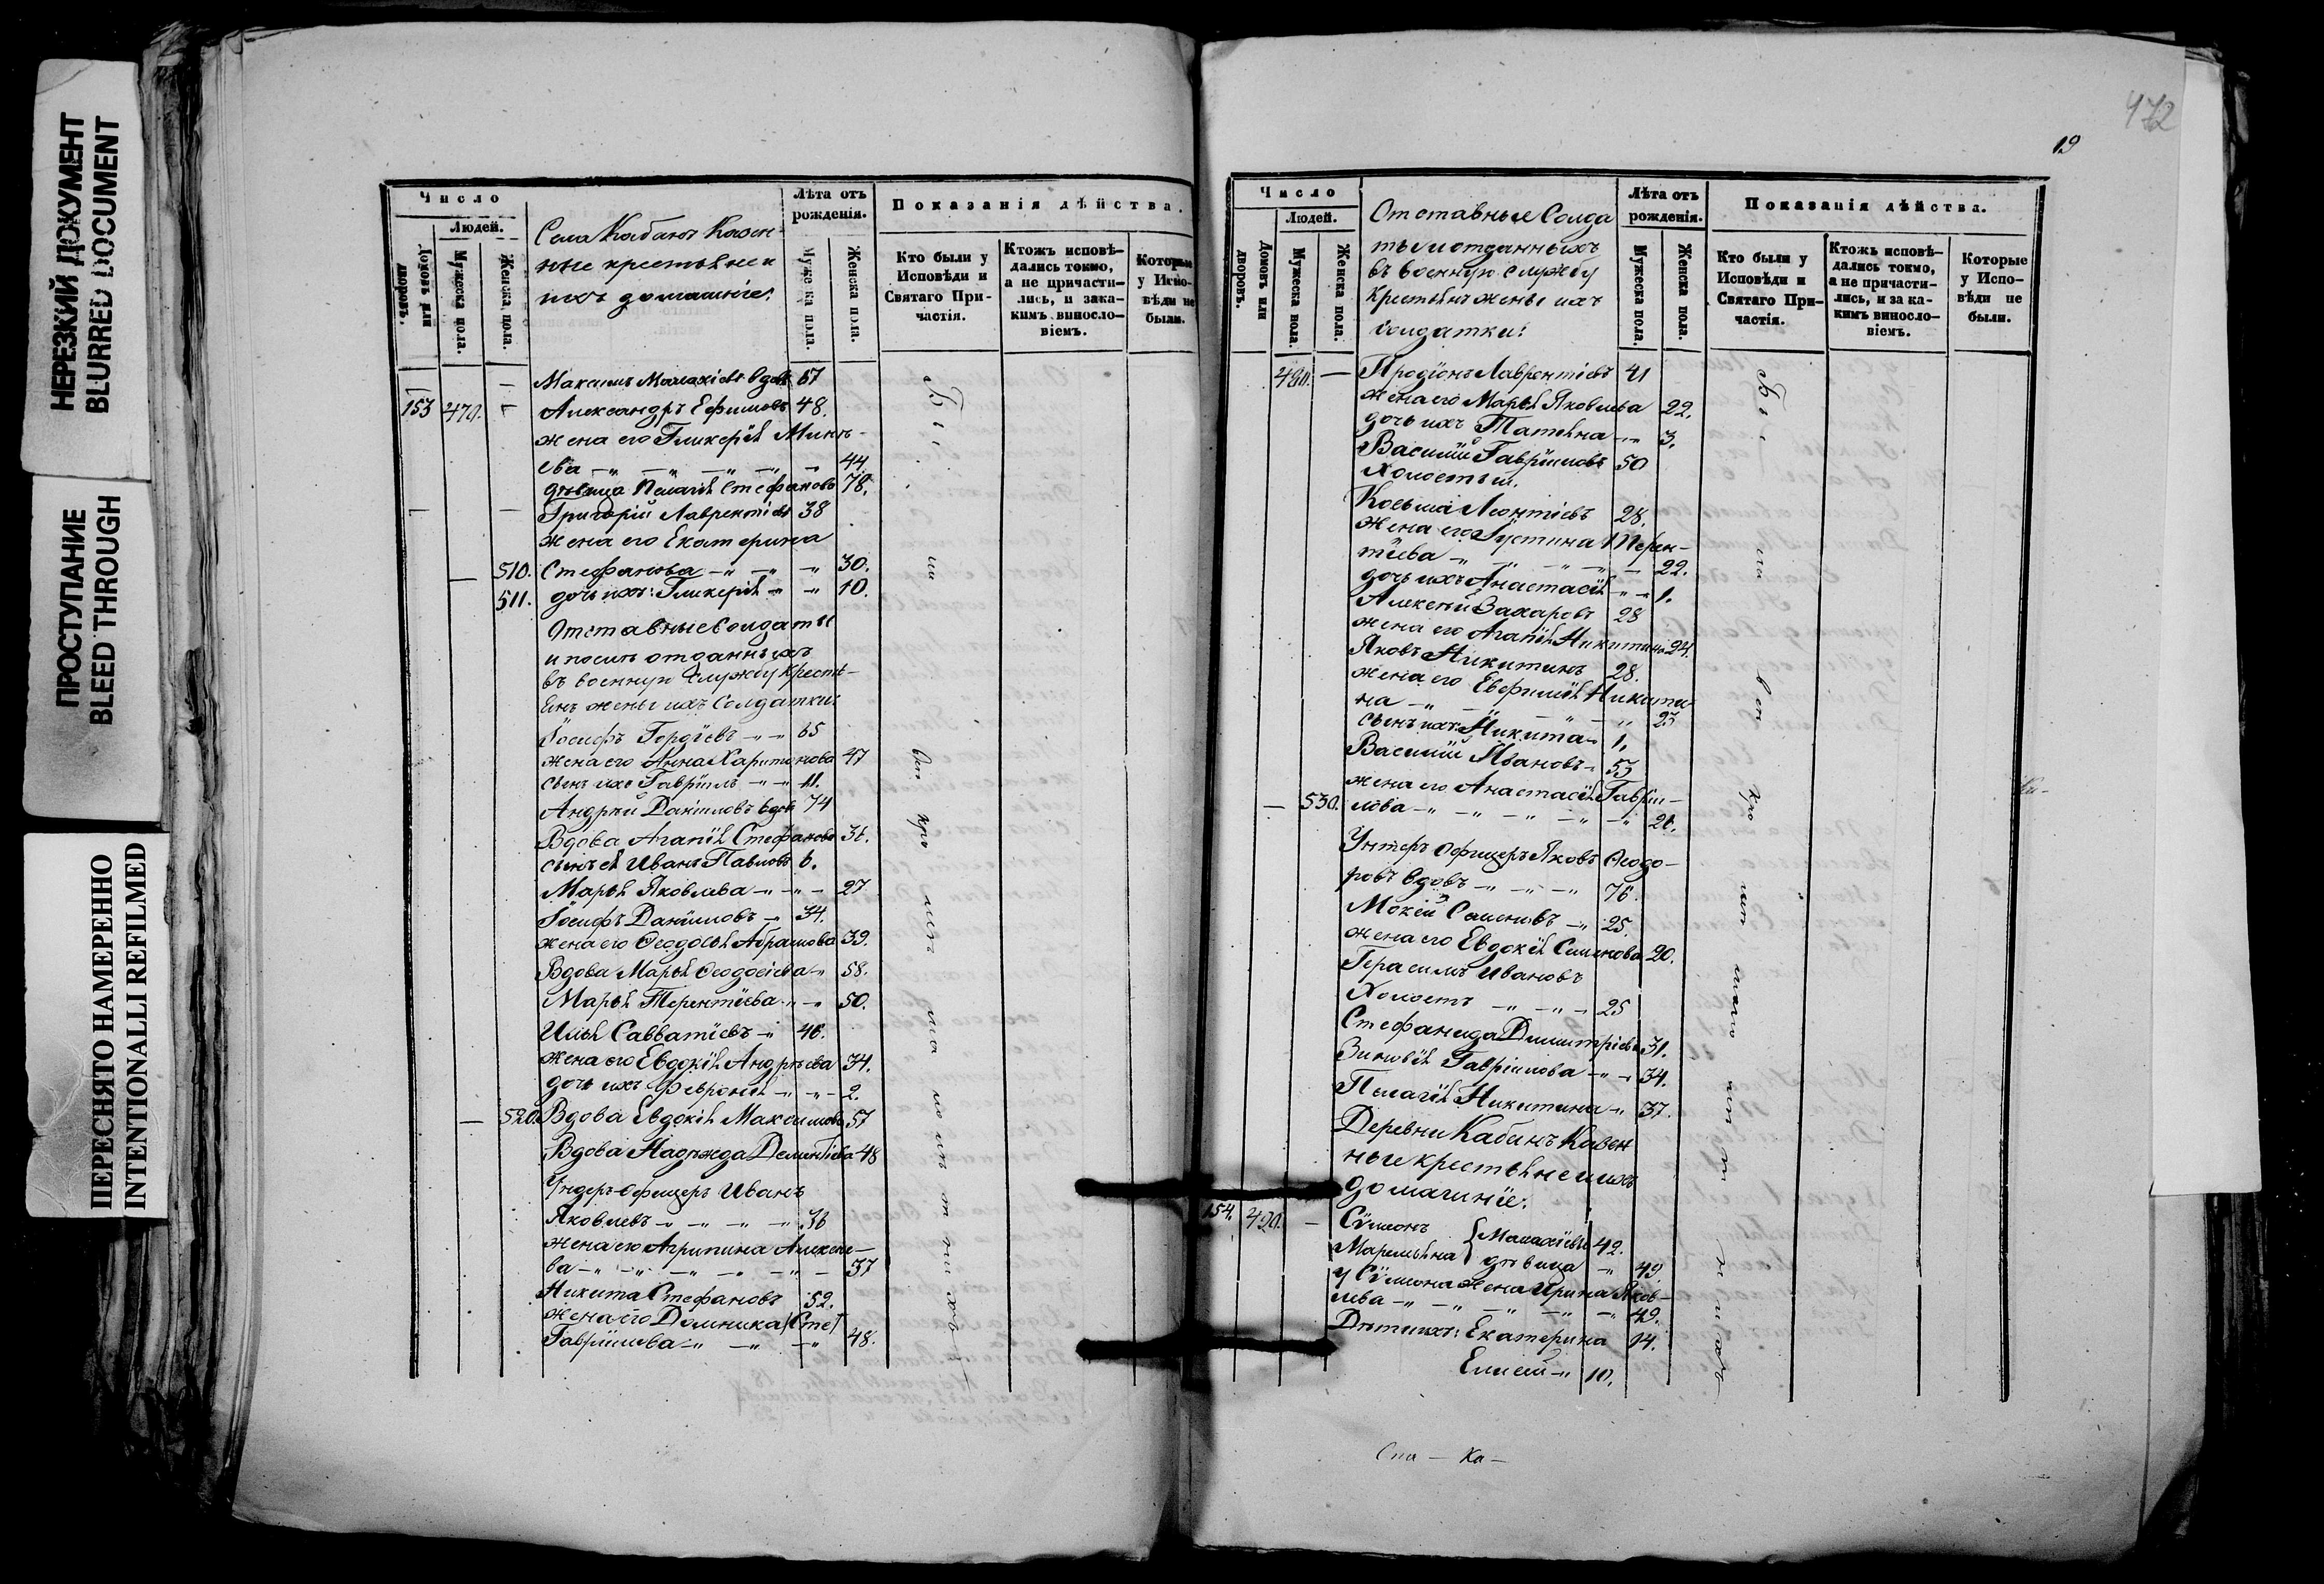 НЕРЕЗКИЙ ДОКУМЕНТ
BLURRED DOCUMENT
ПРОСТУПАНИЕ
BLEED THROUGH
ПЕРЕСНЯТО НАМЕРЕННО
INTENTIONALLI REFILMED
Число
Людей.
Домовъ или дворовъ.
Мужеска пола.
Женска пола.
Села Кабанъ Казен-
ные крестьяне и
ихъ домашніе:
Лѣта отъ рожденія.
Мужеска пола.
Женска пола.
Показанія дѣйства.
Кто были у Исповѣди и Святаго При-частія.
Ктожъ исповѣ-дались токмо, а не причасти-лись, и зака-кимъ винословіемъ.
Которые у Испо-вѣди не были.
Максимъ Малахіевъ вдовъ 67
153 470. Александръ Ефимовъ 48.
жена его Гликерія Мин-
ева 44.
дѣвица Пелагія Стефанова 78.
Григорій Лаврентіевъ 38
жена его Екатерина
510. Стефанова 30.
511. дочь ихъ: Гликерія 10.
Отставные солдаты
и посилъ отданныхъ
въ военную службу крестья-
янъ жены ихъ солдатки:
Іосифъ Гордіевъ 65
жена его Анна Харитонова 47
сынъ ихъ Гавріилъ 11.
Андрей Даніиловъ вдовъ 74
Вдова Агапія Стефанова 36.
сынъ ея Иванъ Павловъ 6.
Марья Яковлева 27
Іосифъ Даніиловъ 34.
жена его Ѳеодосья Абрамова 39.
Вдова Марья Ѳеодосіева 58.
Марья Терентіева 50.
Илья Савватіевъ 46.
жена его Евдокія Андрѣева 34.
дочь ихъ Февронія 2.
520. Вдова Евдокія Максимова 57
Вдова Надежда Дементіева 48
Ундеръ-офицеръ Иванъ
Яковлевъ 36
жена его Агрипина Алексѣе-
ва 37
Никита Стефановъ 52.
жена его Домника (Сте)
Гавріилова 48.
472
19
Число
Людей.
Домовъ или дворовъ.
Мужеска пола.
Женска пола.
Отставные Солда
ты и отданныхъ
въ военную службу
Крестьянъ жены ихъ
солдатки:
Лѣта отъ рожденія.
Мужеска пола.
Женска пола.
Показанія дѣйства.
Кто были у Исповѣди и Святаго При-частія.
Ктожъ исповѣ-дались токмо, а не причасти-лись, и за ка-кимъ винословіемъ.
Которые у Испо-вѣди не были.
480. Иродіонъ Лаврентіевъ 41
жена его Марья Яковлева 22.
дочь ихъ Татьяна 3.
Василій Гавріиловъ 50
Холостый.
Косьма Леонтіевъ 28.
жена его Іустина Терен-
тіева 22.
дочь ихъ Анастасія 1.
Алексѣй Захаровъ 28
жена его Агапія Никитина 24.
Яковъ Никитинъ 28.
жена его Евфимія Никити-
на 25
сынъ ихъ: Никита 1.
Василій Ивановъ 53
жена его Анастасія Гавріи-
530. лова 26.
Унтеръ офицеръ Яковъ Ѳеодо-
ровъ вдовъ 76.
Мокій Семеновъ 25.
жена его Евдокія Семенова 20.
Герасимъ Ивановъ
Холостъ 25
Стефанида Димитріева 31.
Зиновія Гавріилова 34.
Пелагія Никитина 37.
Деревни Кабанъ Казен
ные крестьяне и ихъ
домашніе:
154. 490. Сѵмеонъ Малахіевы 42.
Маремьяна дѣвица 49.
у Сѵмеона жена Ирина Яков-
лева 42.
Дѣти ихъ: Екатерина 14.
Елисей 10.
Спа — Ка —